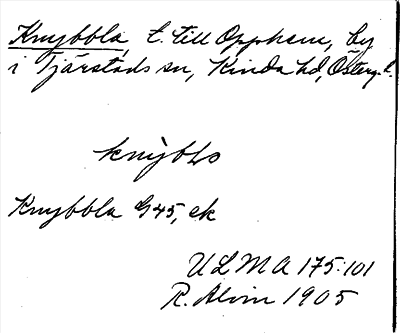 Knybbla, t. till Opphem, by
i Tjärstads sn, Kinda hd, Österg. l.
knỳbḷo
Knybbla G45, ek
ULMA 175:101
R. Alvin 1905